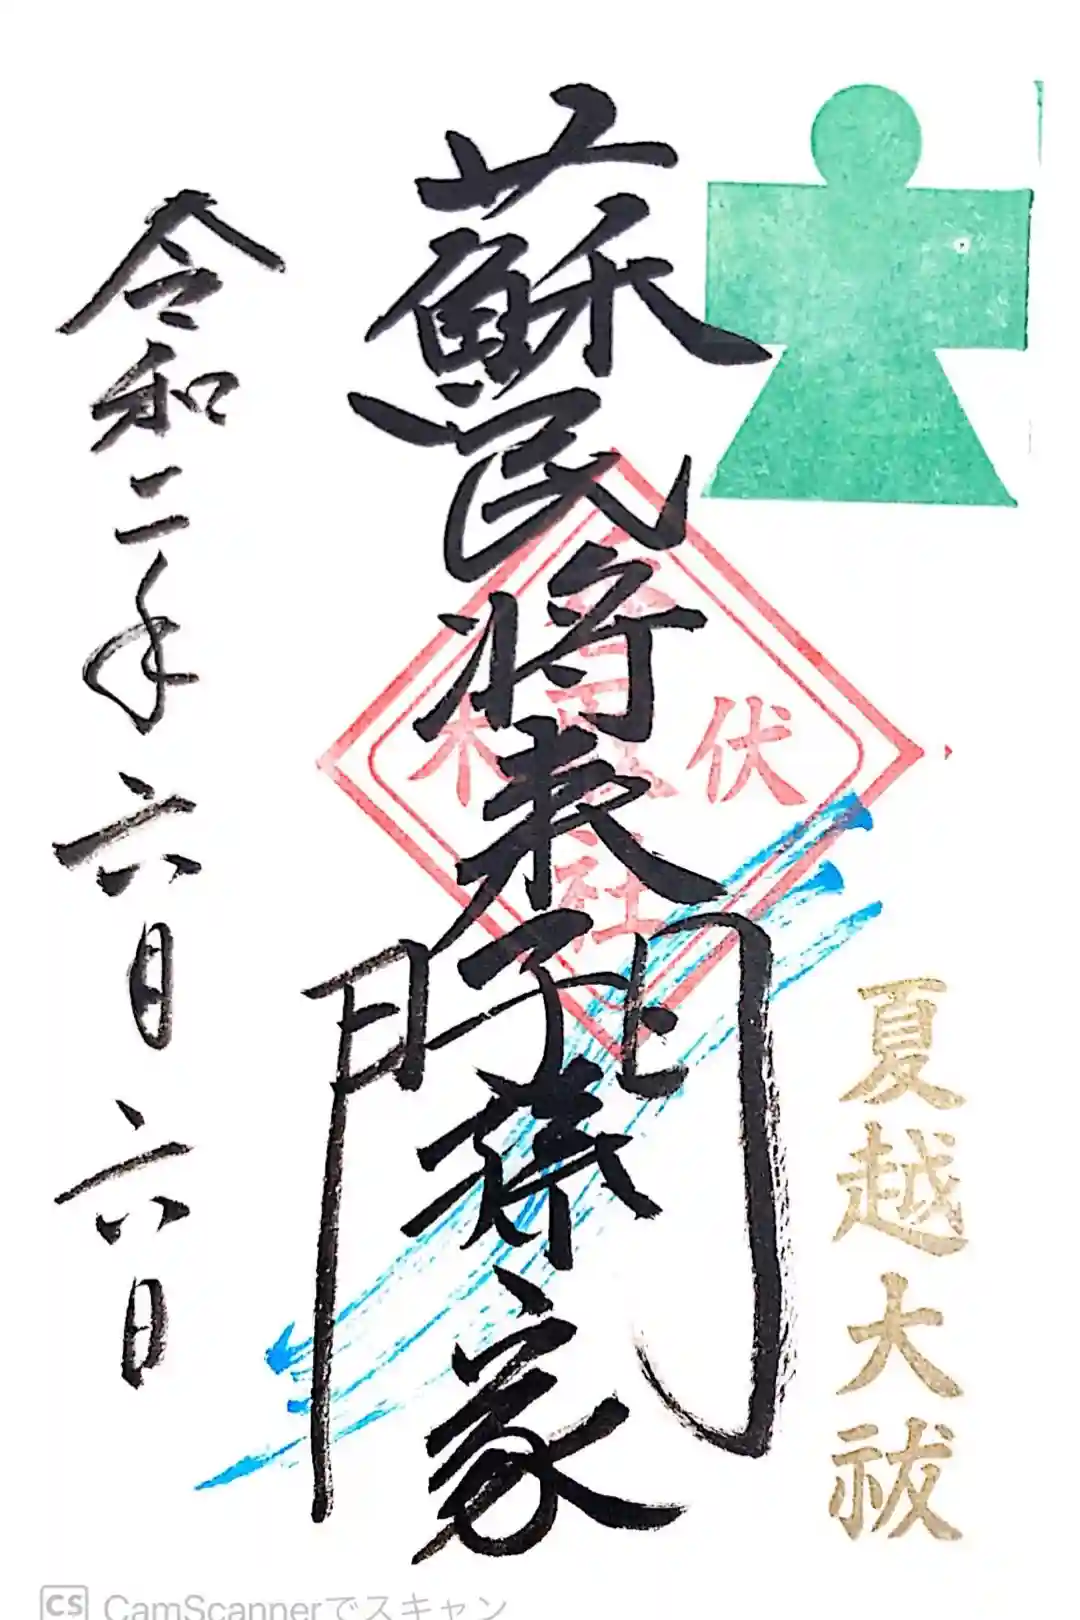 夏越大祓
蘇民将来子孫家門
伏
木
社
令和二年六月六日
CS CamScannerでスキャン